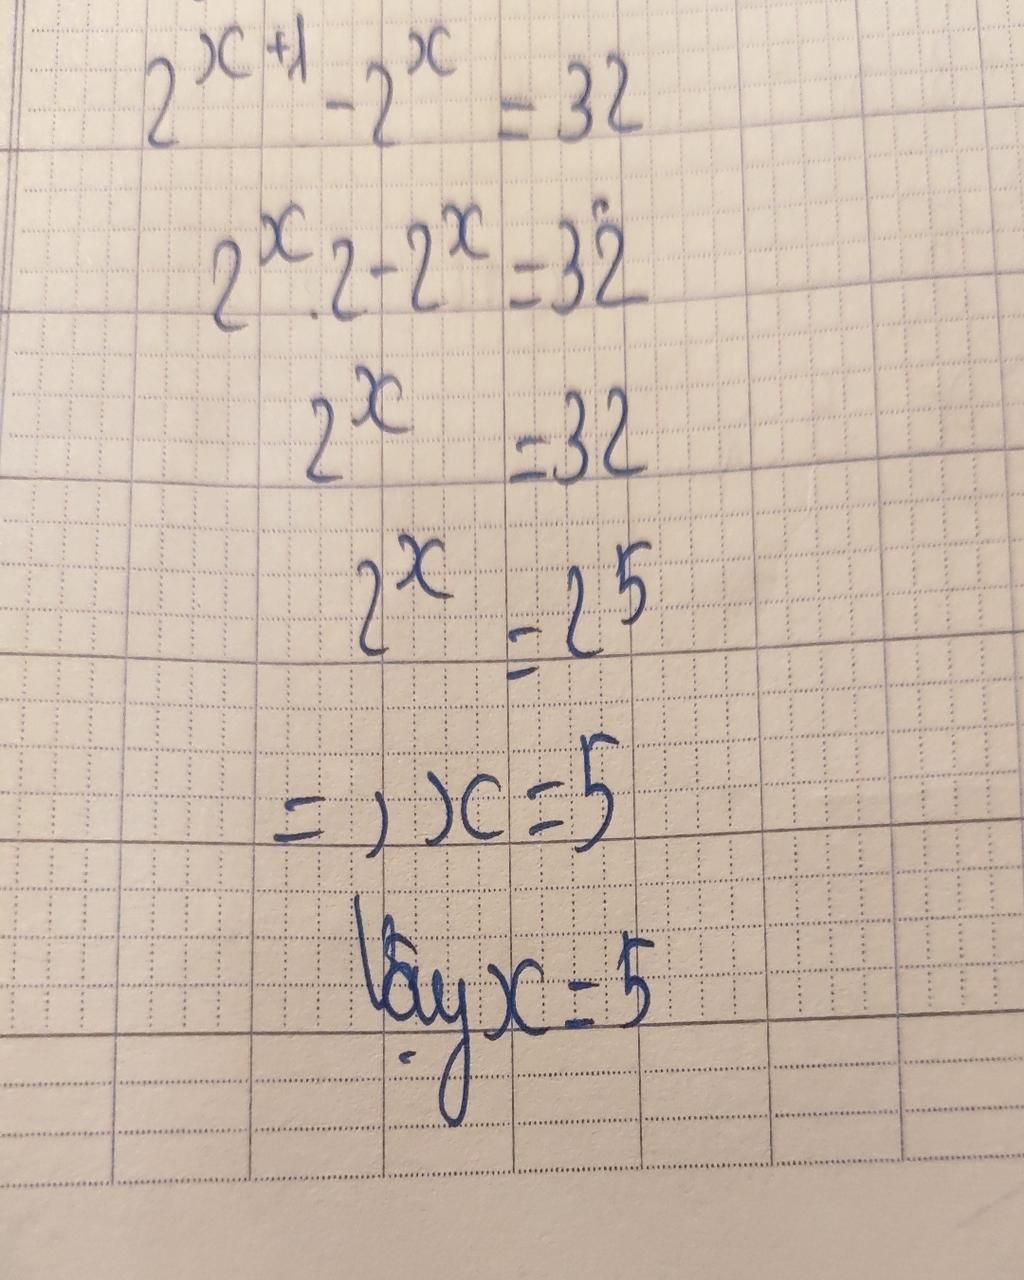 2^{x+1} - 2^x = 32
2^x . 2 - 2^x = 32
2^x = 32
2^x = 2^5
=) x = 5
Vậy x = 5